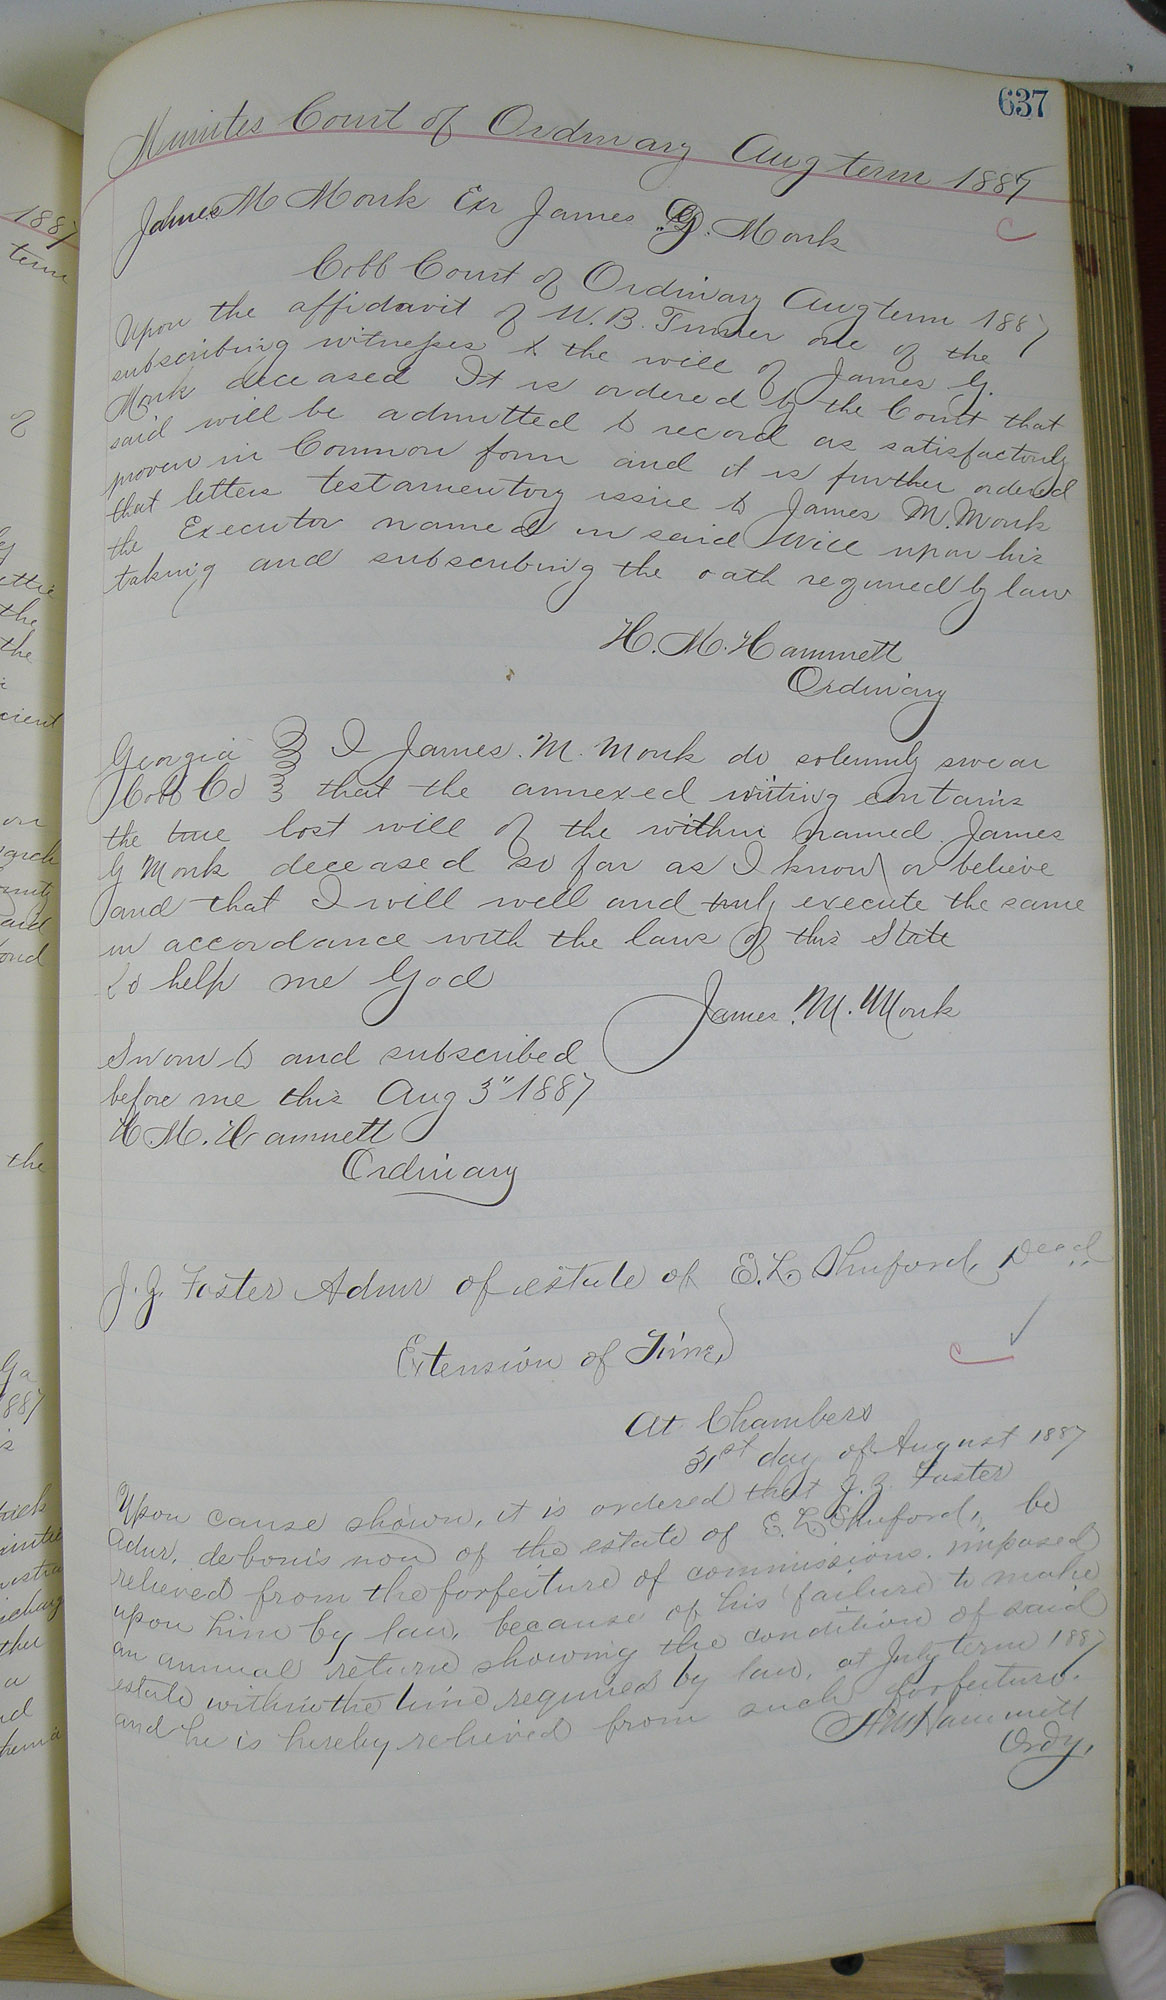 637
Minutes Court of Ordinary Aug term 1887
James M Monk Exr James G. Monk
C
Cobb Court of Ordinary Aug term 1887
Upon the affidavit of W. B. Turner one of the
subscribing witnesses to the will of James G.
Monk deceased It is ordered by the Court that
said will be admitted to record as satisfactorily
proven in Common form and it is further ordered
that letters testamentory issue to James M. Monk
the Executor named in said Will upon his
taking and subscribing the oath required by law
H. M. Hammett
Ordinary
Georgia } I James. M. Monk do solemnly swear
Cobb Co } that the annexed writing contains
the true last will of the within named James
G Monk deceased so far as I know or believe
and that I will well and truly execute the same
in accordance with the laws of this State
So help me God
James. M. Monk
Sworn to and subscribed
before me this Aug 3" 1887
H. M. Hammett
Ordinary
J. Z. Foster Admr of estate of E. L. Shuford, Decd
Extension of Time,
C
At Chambers
31st day of August 1887
Upon cause shown, it is ordered that J. Z. Foster
Admr. de bonis non of the estate of E. L. Shuford, be
relieved from the forfeiture of commissions, imposed
upon him by law, because of his failure to make
an annual return showing the condition of said
estate within the time required by law, at July term 1887
and he is hereby relieved from such forfeiture.
H M Hammett
Ordy,
1887
term
of
the
the
cient
on
the
Ga
1887
a